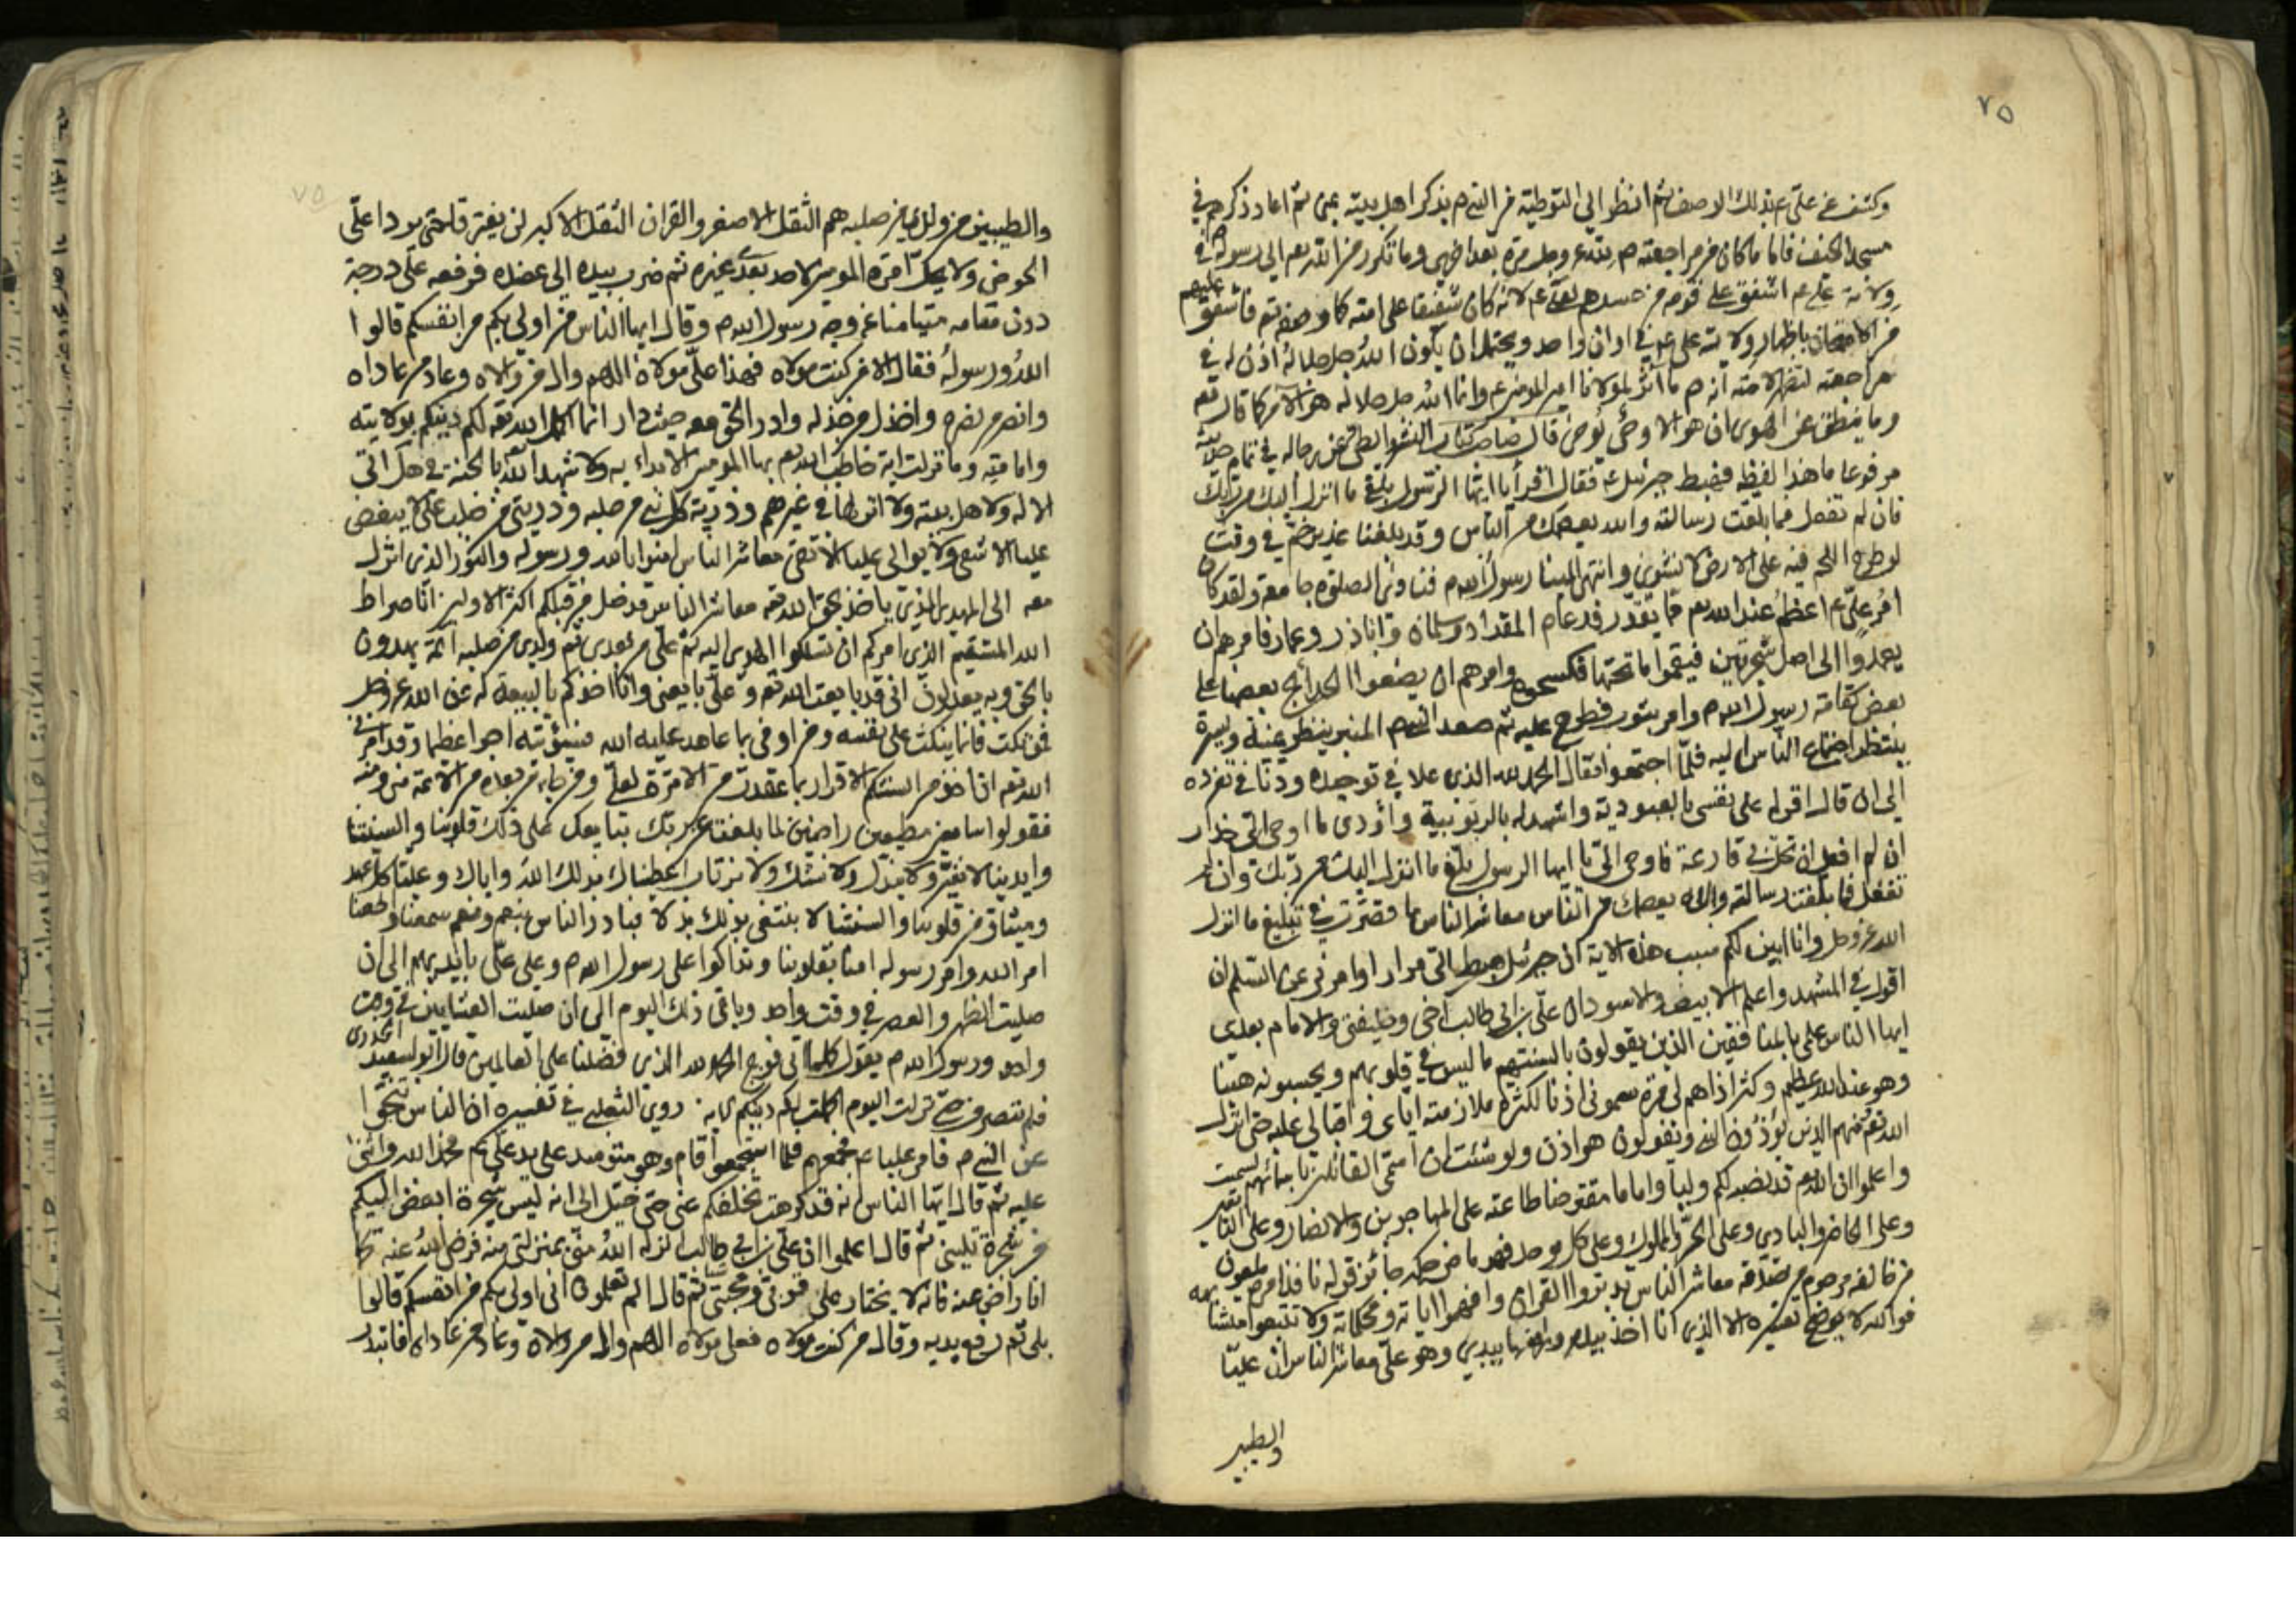 ٧٥
وكشف عن علي ع بذلك الاوصف ثم انظر الي التوطية من النبي ص بذكر اهل بيته بمنى ثم اعاد ذكرهم في
مسجد الخيف فاما ما كان من مراجعته ص لله عز وجل مرة بعد اخرى وما تكرر من الله تعم الى رسوله ص في
ولاية علي ع اشفق على قومه من حسدهم لعلي ع لانه كان شفيقا على امته كما وصفه تعم فاشفق عليهم
من الامتحان باظهار ولاية علي ع في اوان واحد ويحتمل ان يكون الله جل جلاله اذن له في
مراجعته لتظهر لامته انه ص ما آثر لمولانا امير المؤمنين ع وانما الله جل جلاله هو الآمر كما قال تعم
وما ينطق عن الهوى ان هو الا وحي يوحى قال صاحب كتاب النشر والطي عن رجاله في تمام حديثه
مرفوعا ما هذا لفظه فهبط جبرئيل ع فقال اقرأ يا ايها الرسول بلغ ما انزل اليك من ربك
فان لم تفعل فما بلغت رسالته والله يعصمك من الناس وقد بلغنا غدير خم في وقت
لو طرح اللحم فيه على الارض لانشوى وانتهى الينا رسول الله ص فنادى الصلوة جامعة ولقد كان
امر علي ع اعظم عند الله تعم مما يقدر فدعا ص المقداد وسلمان وابا ذر وعمار فامرهم ان
يعمدوا الى اصل شجرتين فيقموا ما تحتها فكسحوه وامرهم ان يضعوا الحجارة بعضها على
بعض كقامة رسول الله ص وامر بثوب فطرح عليه ثم صعد النبي ص المنبر ينظر يمنة ويسرة
ينتظر اجتماع الناس اليه فلما اجتمعوا فقال الحمد لله الذى علا في توحده ودنا في تفرده
الى ان قال اقر له على نفسى بالعبودية واشهد له بالربوبية واؤدى ما اوحى الي حذار
ان لم افعل ان تحل بي قارعة فاوحى الي يا ايها الرسول بلغ ما انزل اليك من ربك وان لم
تفعل فما بلغت رسالته والله يعصمك من الناس معاشر الناس ما قصرت في تبليغ ما انزل
الله عز وجل وانا ابين لكم سبب هذه الاية ان جبرئيل هبط الي مرارا امرنى عن السلم ان
اقول في المشهد واعلم الابيض والاسود ان علي بن ابي طالب اخى وخليفتى والامام بعدى
ايها الناس علمى بالمنافقين الذين يقولون بالسنتهم ما ليس في قلوبهم ويحسبونه هينا
وهو عند الله عظيم وكثر اذاهم لى مرة سمونى اذنا لكثرة ملازمته اياى واقبالى عليه حتى انزل
الله تعم ومنهم الذين يؤذون النبي ويقولون هو اذن ولو شئت ان اسمى القائلين باسمائهم لسميت
واعلموا ان الله تعم قد نصبه لكم وليا واماما مفترضا طاعته على المهاجرين والانصار وعلى التابعين
وعلى الحاضر والبادى وعلى الحر والمملوك وعلى كل موحد فهو ماض حكمه جائز قوله نافذ امره ملعون
من خالفه مرحوم من صدقه معاشر الناس تدبروا القرآن وافهموا آياته ومحكماته ولا تتبعوا متشابهه
فوالله لا يوضح تفسيره الا الذى انا آخذ بيده ورافعها بيدي وهو علي معاشر الناس ان عليا
والطيبين
٧٥
والطيبين من ولدى من صلبه هم الثقل الاصغر والقران الثقل الاكبر لن يفترقا حتى يردا علي
الحوض ولا يحل امرة المؤمنين لاحد بعدى غيره ثم ضرب بيده الى عضده فرفعه على درجة
دون مقامه متيامنا عن وجه رسول الله ص وقال ايها الناس من اولى بكم من انفسكم قالوا
الله ورسوله فقال الا من كنت مولاه فهذا علي مولاه اللهم وال من والاه وعاد من عاداه
وانصر من نصره واخذل من خذله وادر الحق معه حيث دار انما اكمل الله تعم لكم دينكم بولايته
وامامته وما نزلت اية خاطب الله تعم بها المؤمنين الا بداء به ولا شهد الله بالجنة في هل اتى
الا له ولاهل بيته ولا انزلها في غيرهم وذرية كل نبي من صلبه وذريتى من صلب علي لا يبغض
عليا الا شقى ولا يوالى عليا الا تقى معاشر الناس امنوا بالله ورسوله والنور الذى انزل
معه الى المهدى الذى ياخذ بحق الله تعم معاشر الناس قد ضل من قبلكم اكثر الاولين انا صراط
الله المستقيم الذى امركم ان تسلكوا الهدى اليه ثم علي من بعدى ثم ولدى من صلبه ائمة يهدون
بالحق وبه يعدلون انى قد بايعت الله تعم وعلي بايعنى وانا اخذكم بالبيعة له عن الله عز وجل
فمن نكث فانما ينكث على نفسه ومن اوفى بما عاهد عليه الله فسيؤتيه اجرا عظيما وقد امرني
الله تعم ان اخذ من السنتكم الاقرار بما عقدت من الامرة لعلي ومن جاء من بعده من الائمة منى ومنه
فقولوا سامعين مطيعين راضين لما بلغت عن ربك نبايعك على ذلك قلوبنا والسنتنا
وايدينا لا نغير ولا نبدل ولا نشك ولا نرتاب اعطيناك بذلك الله واياك وعليا كل عهد
وميثاق من قلوبنا والسنتنا لا نبتغى بذلك بدلا فبادر الناس بنعم ونعم سمعنا واطعنا
امر الله وامر رسوله امنا بقلوبنا وتداكوا على رسول الله ص وعلى علي بايديهم الى ان
صليت الظهر والعصر في وقت واحد وباقى ذلك اليوم الى ان صليت العشايين في وقت
واحد ورسول الله ص يقول كلما اتى فوج الحمد لله الذى فضلنا على العالمين قال ابو سعيد الخدرى
فلم ننصرف حتى نزلت اليوم اكملت لكم دينكم الاية. روى الثعلبي في تفسيره ان الناس تنحوا
عن النبي ص فامر عليا ع فجمعهم فلما اجتمعوا قام وهو متوسد على يد علي ع فحمد الله واثنى
عليه ثم قال ايها الناس انه قد كرهت تخلفكم عنى حتى خيل الى انه ليس شجرة ابغض اليكم
من شجرة تلينى ثم قال اعلموا ان علي بن ابي طالب انزله الله منى بمنزلتى منه فرضى الله عنه كما
انا راض عنه فانه لا يختار على قربى ومحبتى شيئا ثم قال الم تعلمون انى اولى بكم من انفسكم قالوا
بلى ثم رفع يديه وقال من كنت مولاه فعلى مولاه اللهم وال من والاه وعاد من عاداه فابتدر